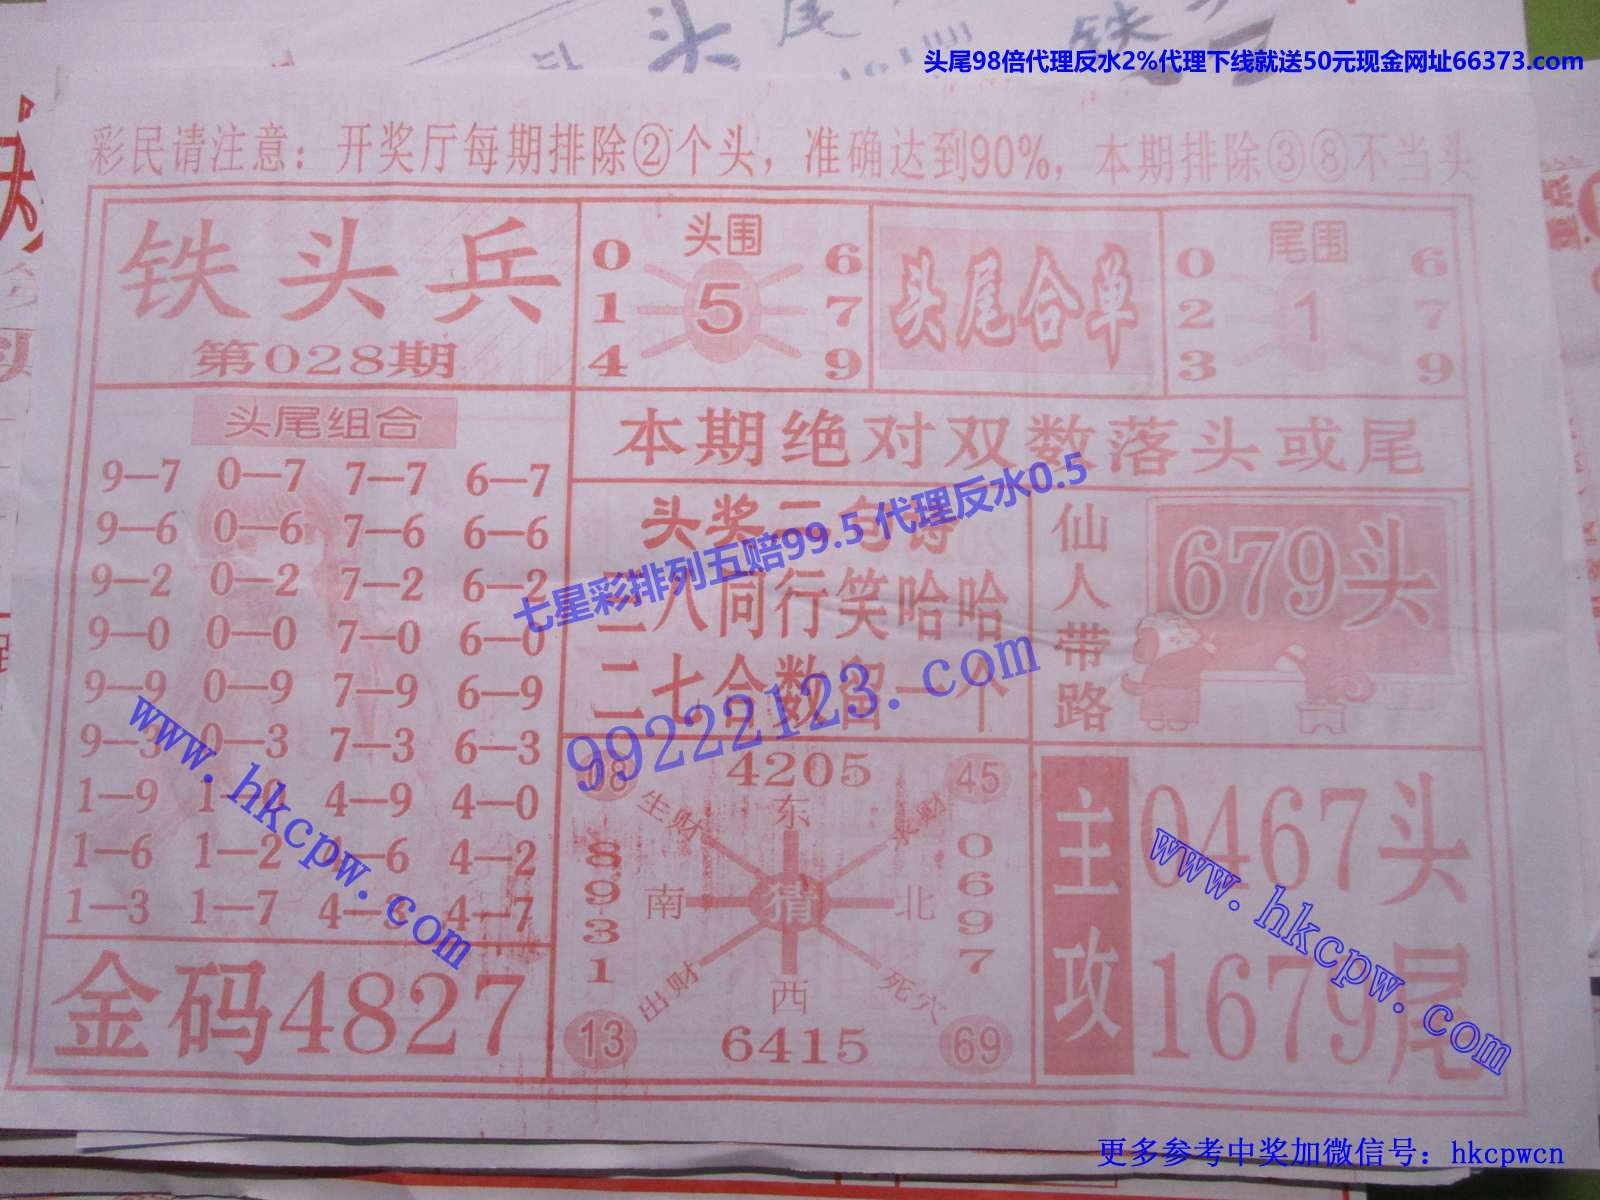 头尾
铁
头尾98倍代理反水2%代理下线就送50元现金网址66373.com
彩民请注意：开奖厅每期排除②个头，准确达到90%，本期排除③⑧不当头
重点
铁头兵
第028期
头围
0 6
1 5 7
4 9
头尾合单
尾围
0 6
2 1 7
3 9
头尾组合
9—7 0—7 7—7 6—7
9—6 0—6 7—6 6—6
9—2 0—2 7—2 6—2
9—0 0—0 7—0 6—0
9—9 0—9 7—9 6—9
9—3 0—3 7—3 6—3
1—9 4—9 4—0
1—6 1—2 4—2
1—3 1—7 4—7
金码4827
本期绝对双数落头或尾
头奖
八同行笑哈哈
二七合数留一个
七星彩排列五赔99.5 代理反水0.5
99222123.com
仙人带路
679头
4205
45
生财
东
8931
南
猜
北
0697
出财
西
死穴
13
6415
69
主攻
0467头
1679尾
www.hkcpw.com
www.hkcpw.com
更多参考中奖加微信号：hkcpwcn